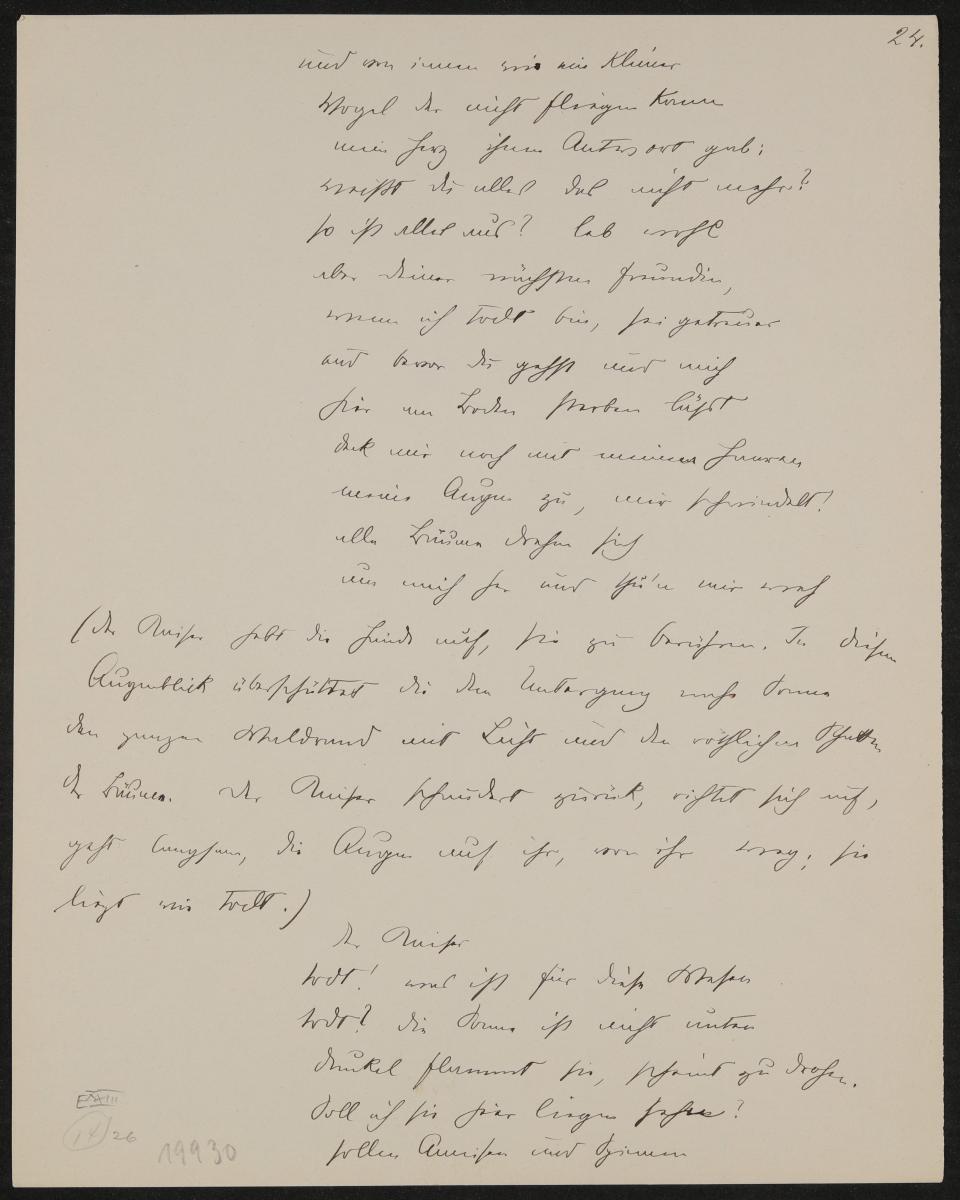 24.
und von innen wie ein kleiner
Vogel der nicht fliegen kann
mein Herz ihnen Antwort gab:
weißt du alles das nicht mehr?
so ist alles aus? leb wohl
aber deiner nächsten Freundin,
wenn ich todt bin, sei getreuer
und bevor du gehst und mich
hier am Boden sterben läßt
deck mir noch mit meinen Haaren
meine Augen zu, mir schwindelt!
alle Bäume drehen sich
um mich her und thu'n mir weh
(der Kaiser hebt die Hände auf, sie zu berühren. In diesem
Augenblick überschüttet die dem Untergang nahe Sonne
den ganzen Waldrand mit Licht und den röthlichen Schatten
der Bäume. Der Kaiser schaudert zurück, richtet sich auf,
geht langsam, die Augen auf ihr, von ihr weg; sie
liegt wie todt.)
der Kaiser
todt! was ist für diese Wesen
todt? die Sonne ist nicht unten
dunkel flammt sie, scheint zu drohen.
Soll ich sie hier liegen sehen?
sollen Ameisen und Spinnen
26
19930